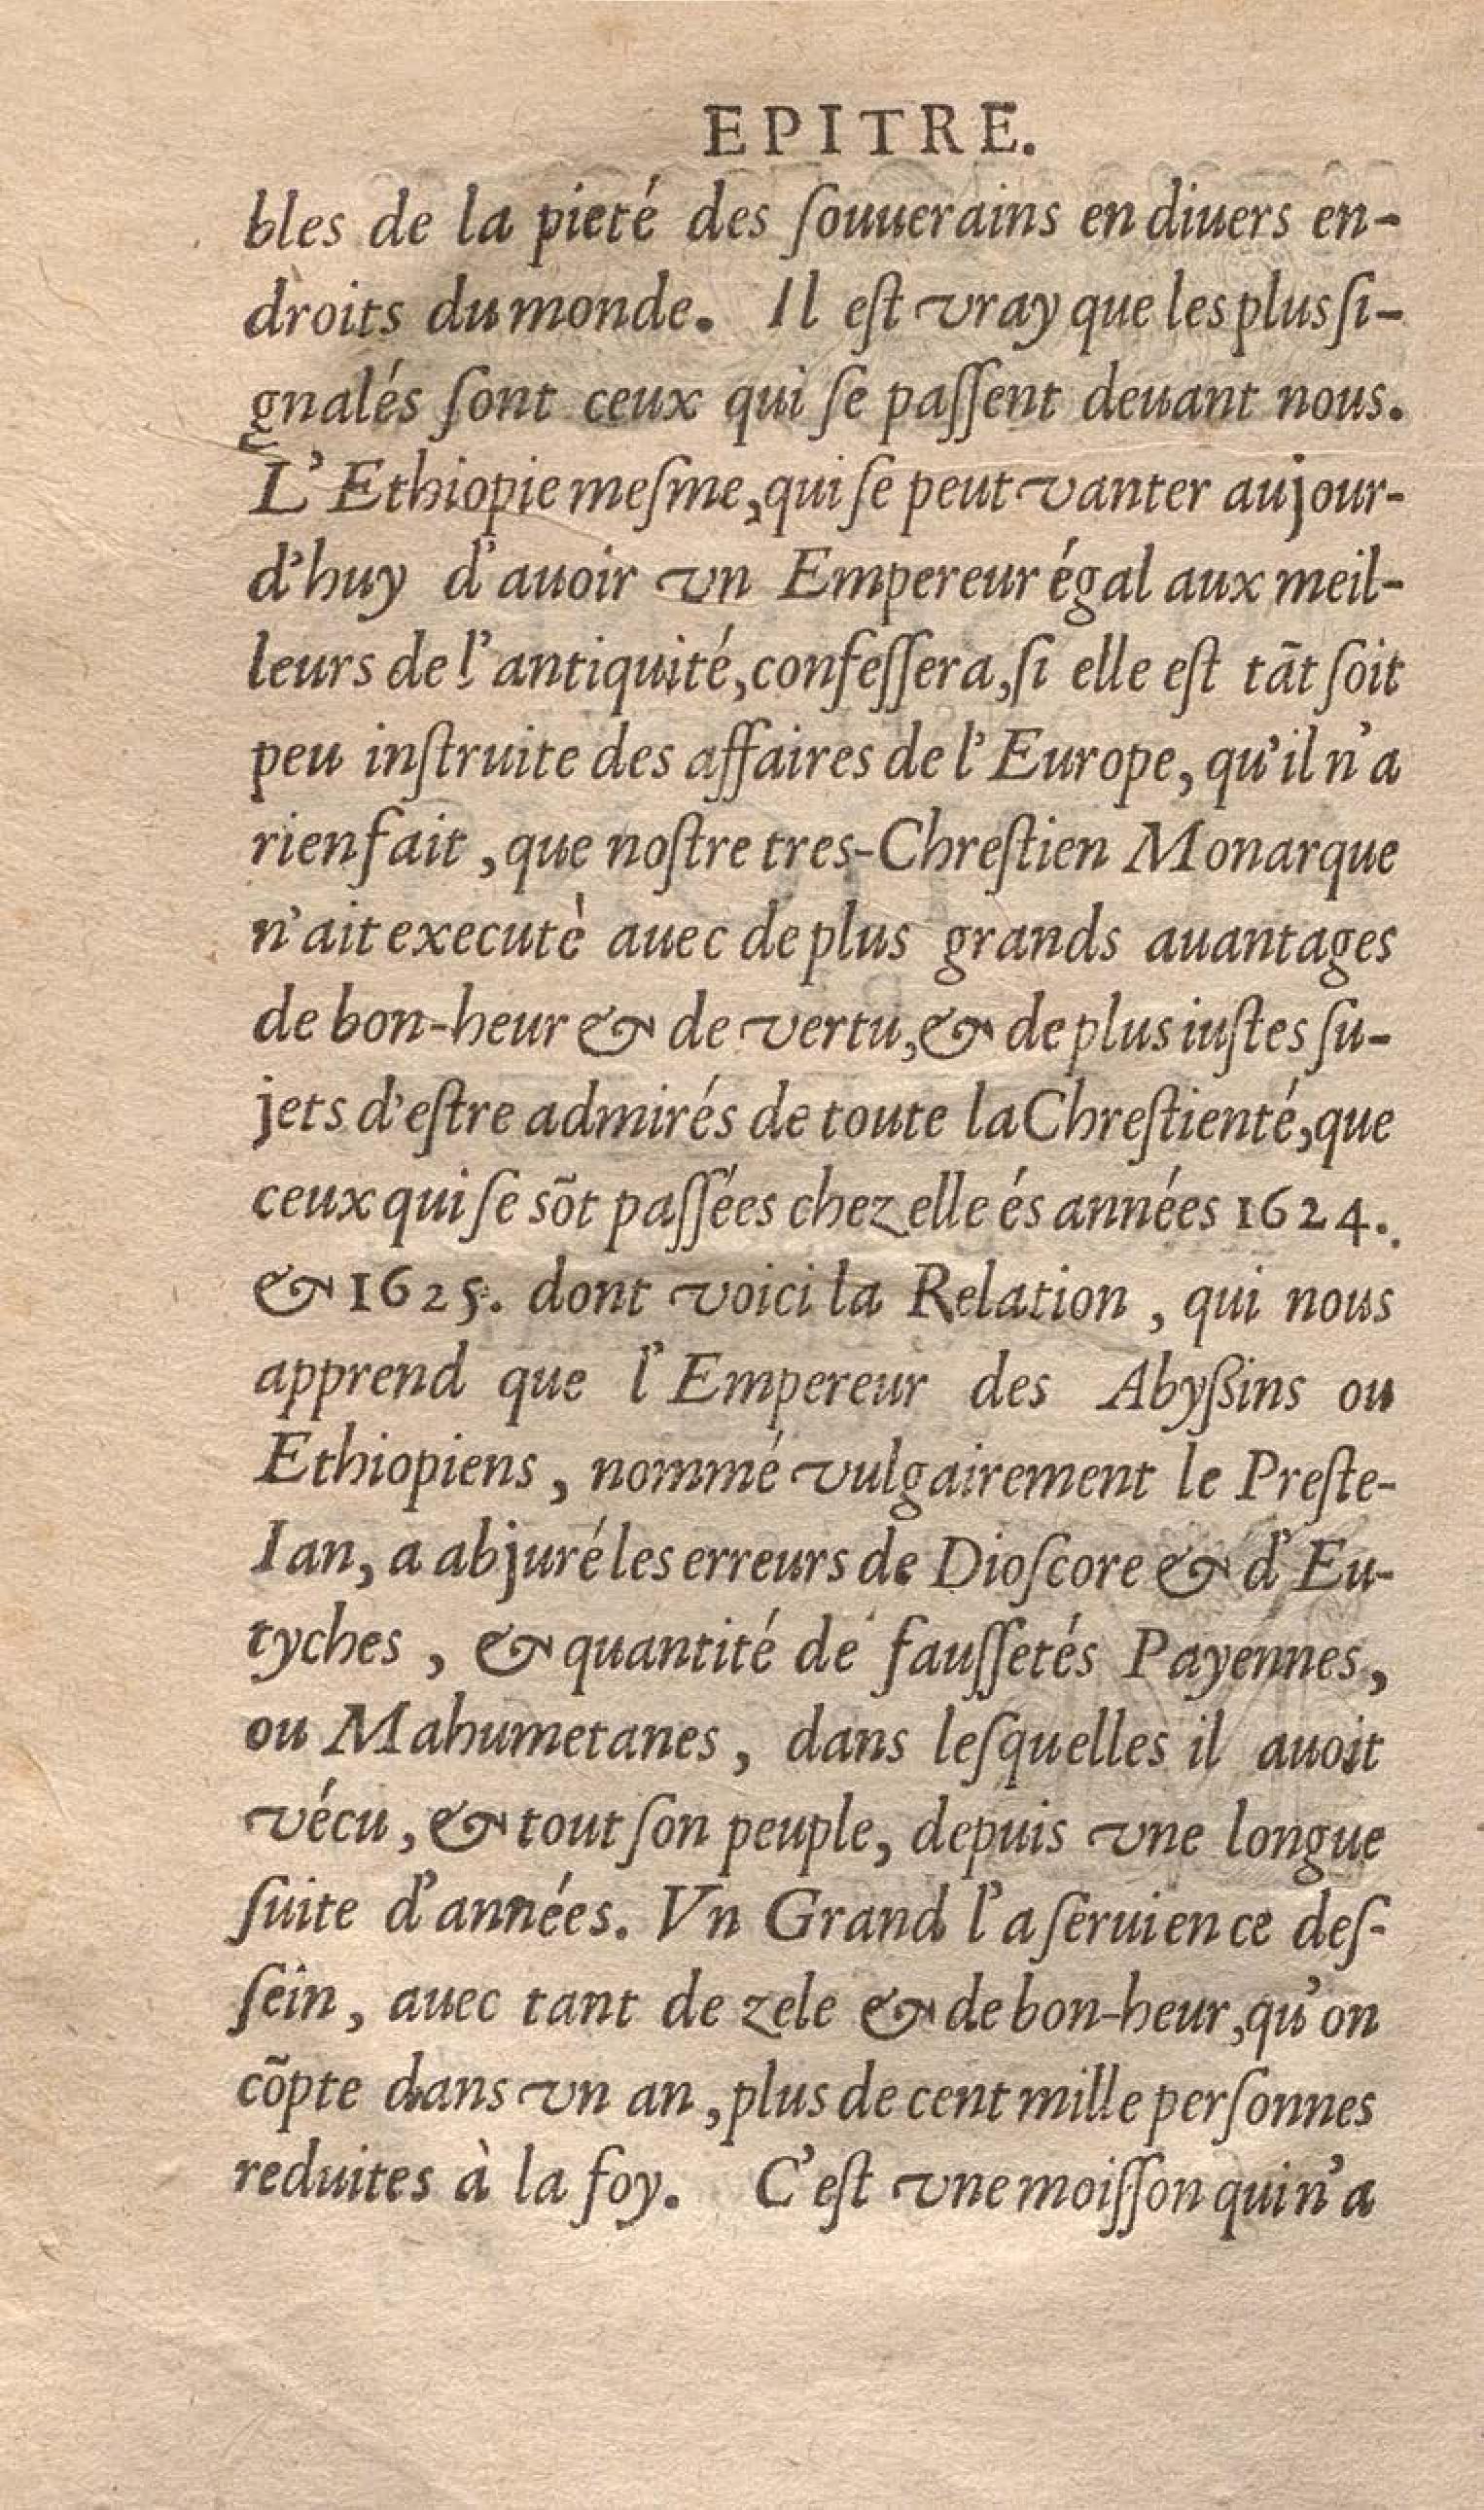 EPITRE.
bles de la pieté des ſouuerains en diuers en-
droits du monde. Il eſt vray que les plus ſi-
gnalés ſont ceux qui ſe paſſent deuant nous.
L'Ethiopie meſme, qui ſe peut vanter aujour-
d'huy d'auoir vn Empereur égal aux meil-
leurs de l'antiquité, confeſſera, ſi elle eſt tãt ſoit
peu inſtruite des affaires de l'Europe, qu'il n'a
rien fait, que noſtre tres-Chreſtien Monarque
n'ait executè auec de plus grands auantages
de bon-heur & de vertu, & de plus iuſtes ſu-
jets d'eſtre admirés de toute la Chreſtienté, que
ceux qui ſe sõt paſſées chez elle és années 1624.
& 1625. dont voici la Relation, qui nous
apprend que l'Empereur des Abyßins ou
Ethiopiens, nommé vulgairement le Preſte-
Ian, a abjuré les erreurs de Dioſcore & d'Eu-
tyches, & quantité de fauſſetés Payennes,
ou Mahumetanes, dans leſquelles il auoit
vécu, & tout ſon peuple, depuis vne longue
ſuite d'années. Vn Grand l'a ſerui en ce deſ-
ſein, auec tant de zele & de bon-heur, qu'on
cõpte dans vn an, plus de cent mille perſonnes
reduites à la foy. C'eſt vne moiſſon qui n'a